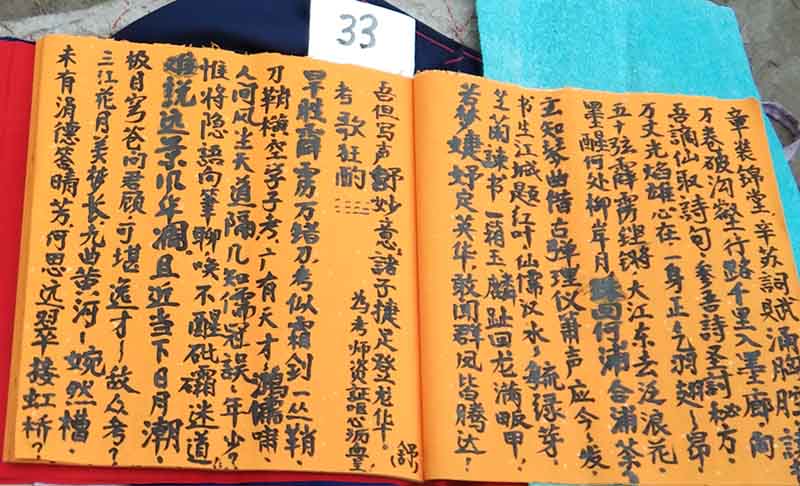 33
章装锦堂 辛苏詞賦涌胸腔 詩
万卷破沟壑~行路千里入墨廊 陶
吾谪仙取詩句 参吾詩圣詞秘方
万丈光焰雄心在 一身正气羽翅~昂
五十弦霹雳铿锵 大江东去泛浪花
墨醒何处柳岸月 珠回何浦合浦茶
玄知琴曲惜古弹 理仪萧声应今~发
书生江城题红叶 仙儒汉水~毓绿芽
芝蘭諫书一箱玉 麟趾回龙满畈甲
若梦婕妤定英华 敢闻群凤皆腾达!
吾但写声舒妙意 諸子捷足登龙华。
为考师資証呕心沥血(舒)
考歌狂酌
旱胜霹雳万绪刀 考似霜剑一丛鞘
刀鞘横空字子考 广有天才鸿儒啸
人间风尘天道隔 几知儒冠誤~年少?
惟将隐語向筆聊 唤不醒砒霜迷道
难説远景风华凋 且近当下日月潮
极目穹苍问君顾 可堪逸才~敌众考?
三江花月美梦长 九曲黄河~婉然槽
未有涓德答晴芳 何思远翠接虹桥?